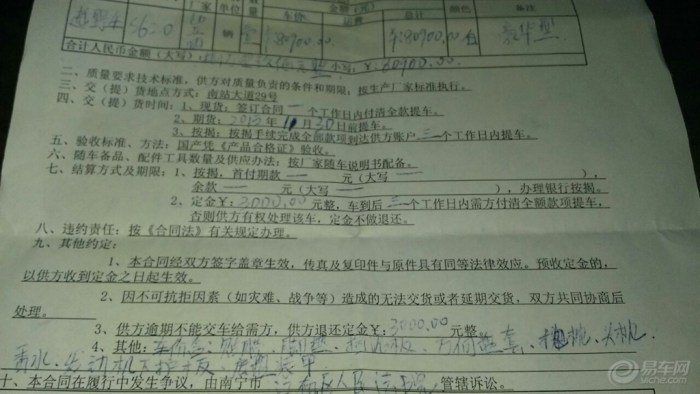 厂家 单位 量 车价 运费 总计 颜色 备注
越野车 辆 ¥:80900.00 ¥:80900.00 豪华型
合计人民币金额(大写): 小写:¥:80900.00
二、质量要求技术标准、供方对质量负责的条件和期限:按生产厂家标准执行。
三、交(提)货地点方式:南站大道29号
四、交(提)货时间:1、现货:签订合同 一 个工作日内付清全款提车。
2、期货:2012年11月30日前提车。
3、按揭:按揭手续完成全部款项到达供方账户 三 个工作日内提车。
五、验收标准、方法:国产凭《产品合格证》验收。
六、随车备品、配件工具数量及供应办法:按厂家随车说明书配备。
七、结算方式及期限:1、按揭,首付期款 — 元(大写 — ),
余款 — 元(大写 — ),办理银行按揭。
2、定金¥:3000.00元整,车到后 三 个工作日内需方付清全额款项提车,
否则供方有权处理该车,定金不做退还。
八、违约责任:按《合同法》有关规定办理。
九、其他约定:
1、本合同经双方签字盖章生效,传真及复印件与原件具有同等法律效应。预收定金的,
以供方收到定金之日起生效。
2、因不可抗拒因素(如灾难、战争等)造成的无法交货或者延期交货,双方共同协商后
处理。
3、供方逾期不能交车给需方,供方退还定金¥:3000.00元整
4、其他:
香水、发动机下护板、
十、本合同在履行中发生争议,由南宁市 管辖诉讼。
易车网